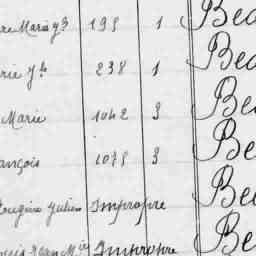 re Marie Yh 195 1 Bea
rie Yh 238 1 Bea
Marie 1042 3 Bea
ançois 1075 3 Be
Eougène Julien Impropre Bea
ouis Jean Mie Impropre Be